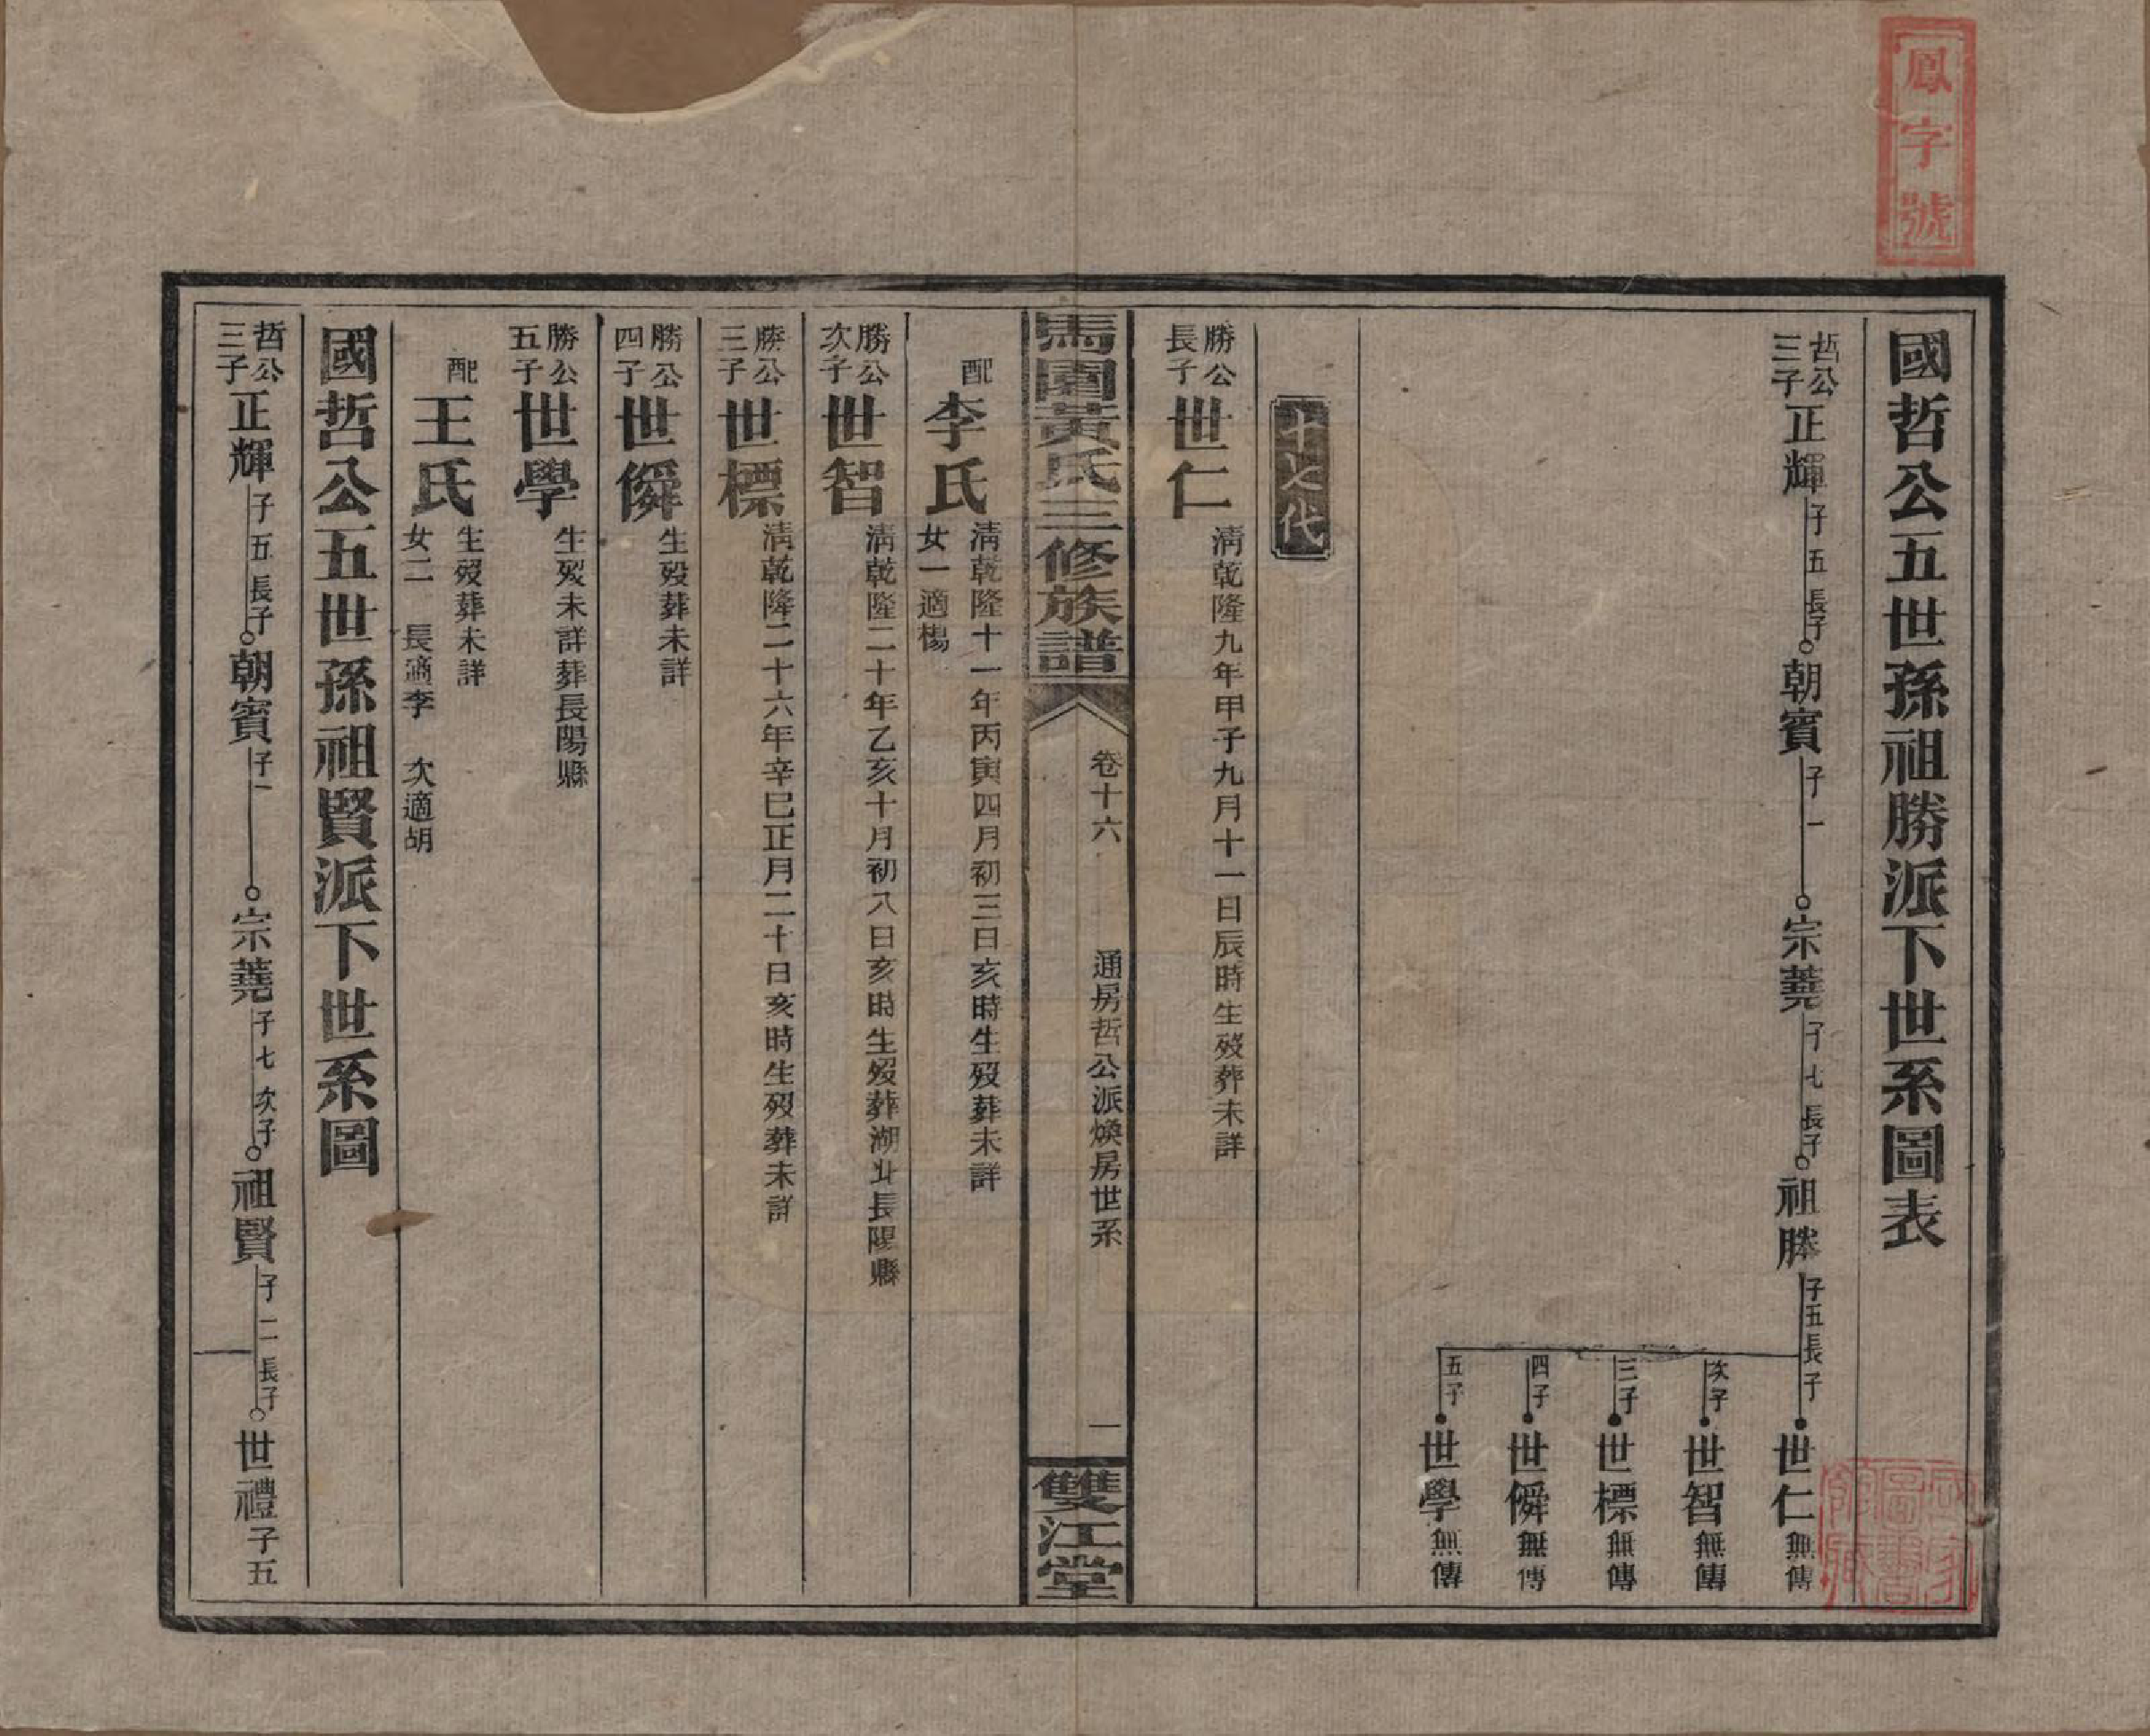 鳳字號
國哲公五世孫祖勝派下世系圖表
哲公三子 正輝 子五 長子 朝賓 子一 宗蕘 子七 長子 祖勝 子五 長子 世仁 無傳
次子 世智 無傳
三子 世標 無傳
四子 世僢 無傳
五子 世學 無傳
十七代
勝公長子 世仁 清乾隆九年甲子九月十一日辰時生歿葬未詳
馬園黃氏三修族譜 卷十六 通房哲公派煥房世系 一 雙江堂
配 李氏 清乾隆十一年丙寅四月初三日亥時生歿葬未詳
女一適楊
勝公次子 世智 清乾隆二十年乙亥十月初八日亥時生歿葬湖北長陽縣
勝公三子 世標 清乾隆二十六年辛巳正月二十日亥時生歿葬未詳
勝公四子 世僢 生歿葬未詳
勝公五子 世學 生歿未詳葬長陽縣
配 王氏 生歿葬未詳
女二 長適李 次適胡
國哲公五世孫祖賢派下世系圖
哲公三子 正輝 子五 長子 朝賓 子一 宗蕘 子七 次子 祖賢 子二 長子 世禮 子五